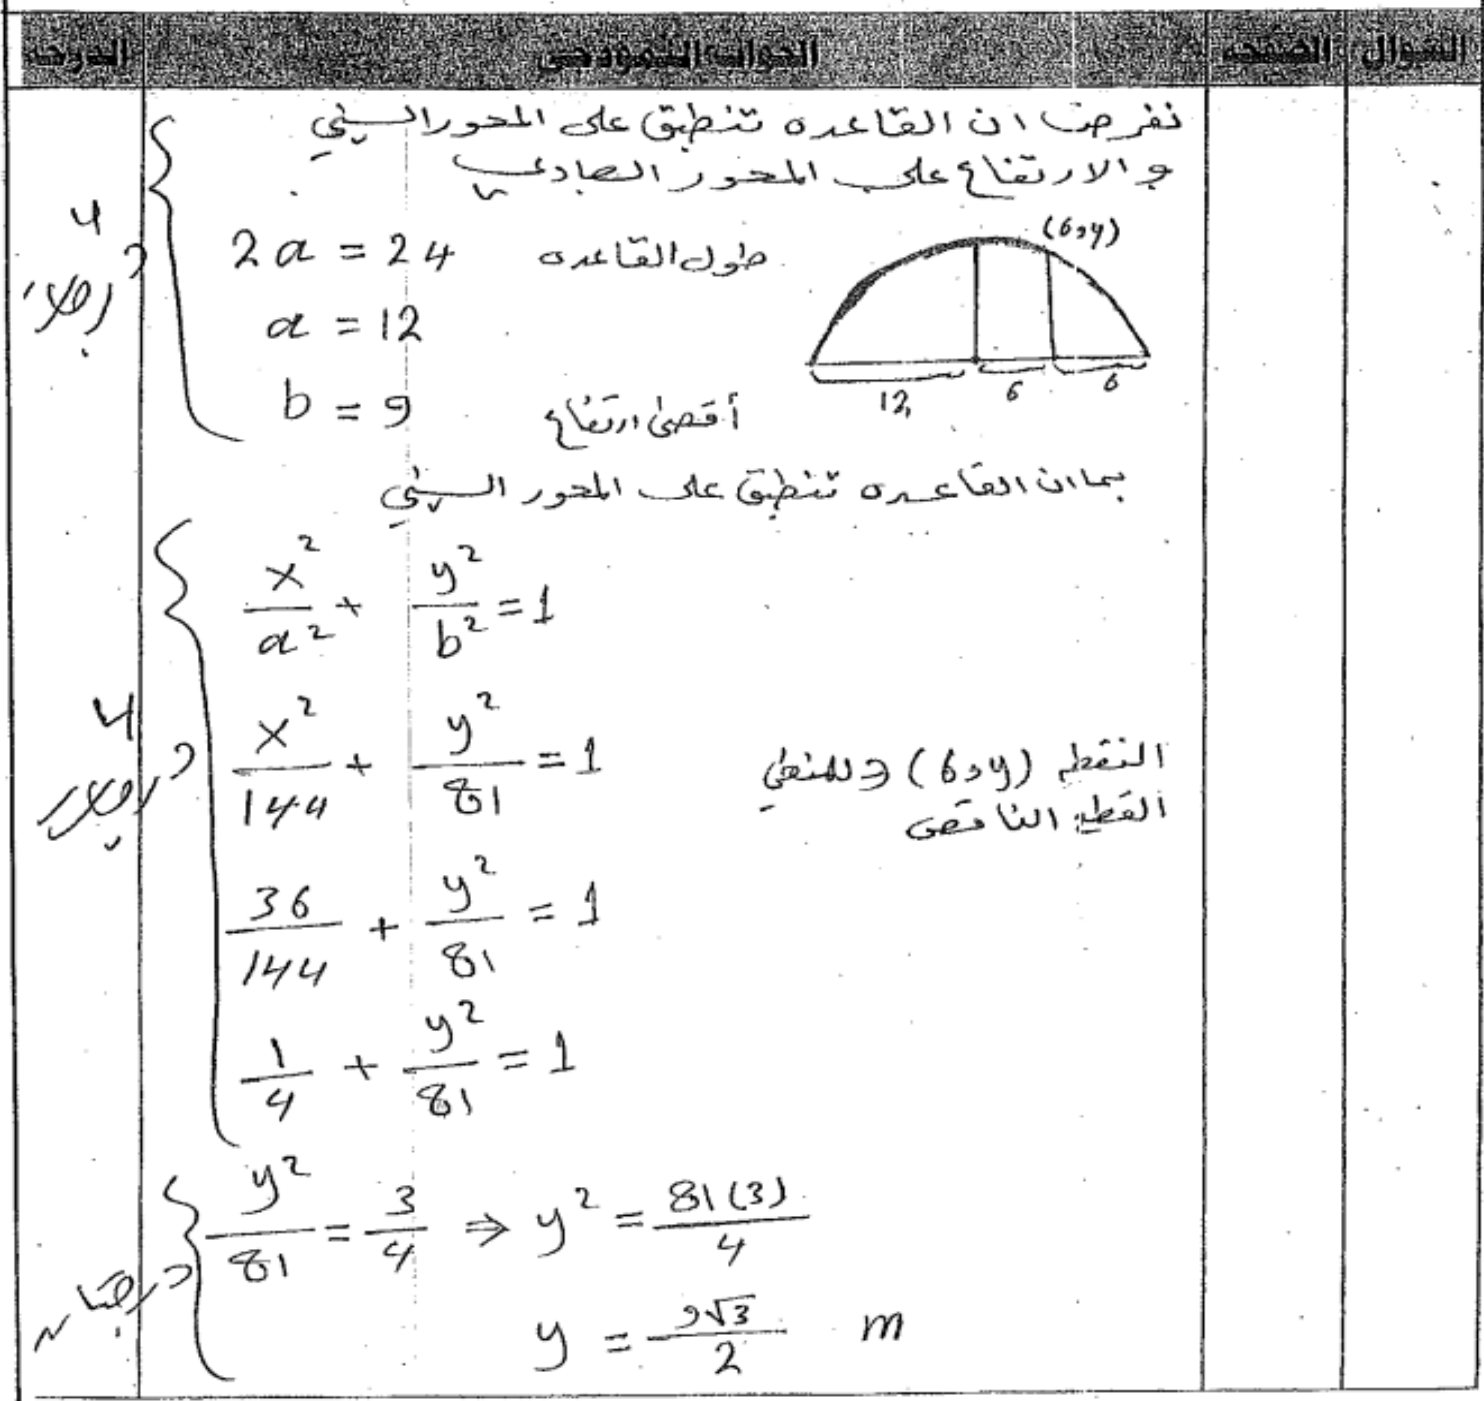 السؤال الصفحة الجواب النموذجي الدرجة
نفرض ان القاعده تنطبق على المحور السيني
و الارتفاع على المحور الصادي
4 درجات
2a = 24 طول القاعده
(6,y)
a = 12
12, 6 6
b = 9 أقصى ارتفاع
بما ان القاعده تنطبق على المحور السيني
x²/a² + y²/b² = 1
4 درجات
x²/144 + y²/81 = 1
النقطه (6,y) ∈ للمنحني
القطع الناقص
36/144 + y²/81 = 1
1/4 + y²/81 = 1
y²/81 = 3/4 ⇒ y² = 81(3)/4
درجتان
y = 9√3/2 m